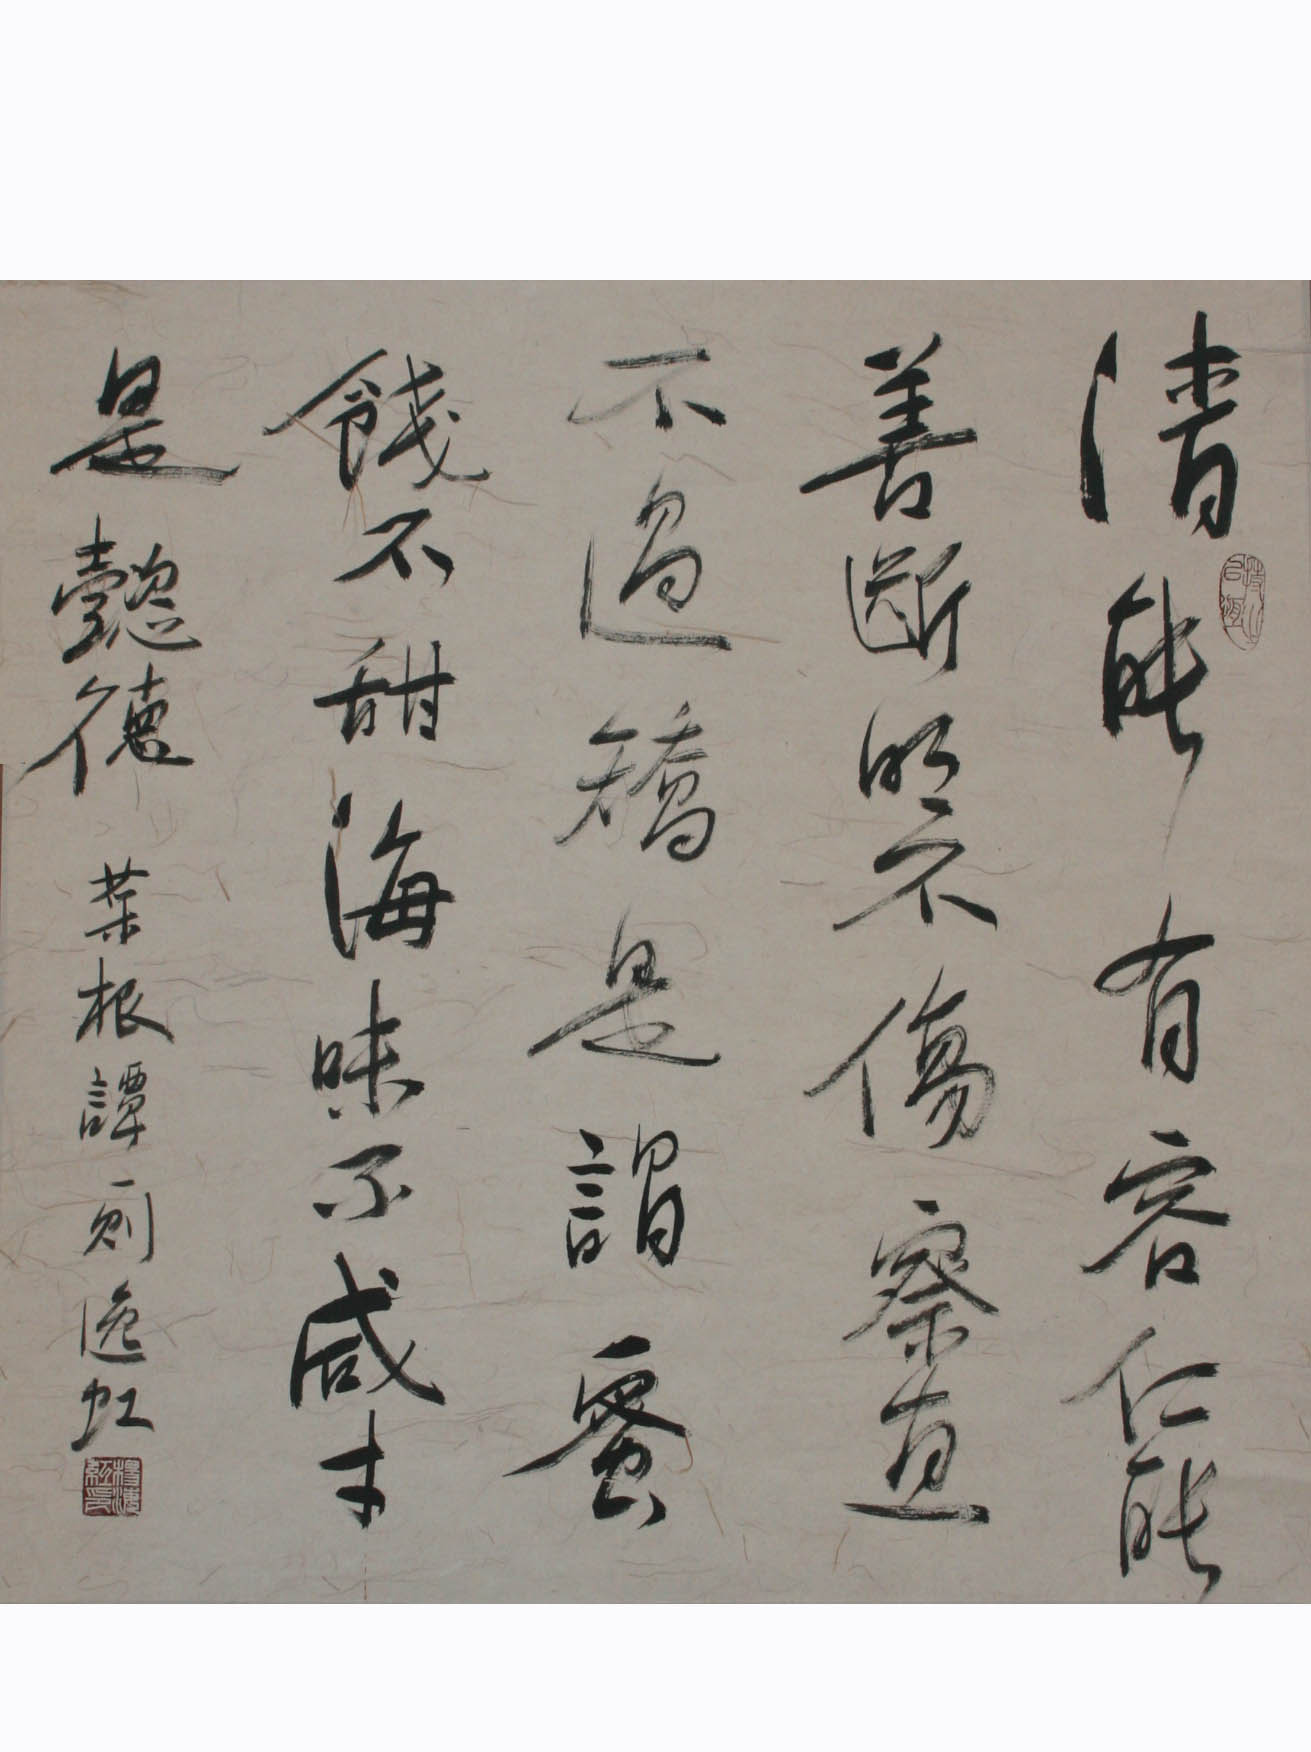 清能有容仁能
善斷明不傷察直
不過矯是謂蜜
餞不甜海味不咸才
是懿德 菜根譚一則 逸虹